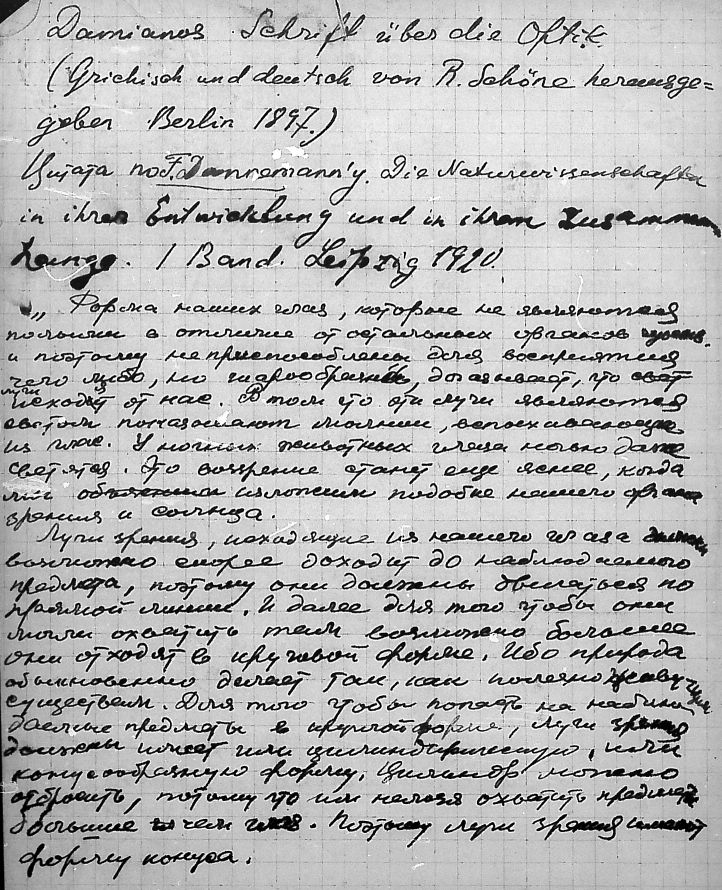 Damianos Schrift über die Optik.
(Grichisch und deutsch von R. Schöne herausge=
geber Berlin 1897.)
Цитата по F. Dannemann'у. Die Naturwissenschaften
in ihrer Entwicklung und in ihrem Zusammen
hange. I Band. Leipzig 1920.
„ Форма наших глаз, которые не являются
полыми в отличие от остальных органов чувств.
и поэтому не приспособлены для восприятия
чего либо, но шарообразны, доказывает, что свет
лучи исходят от нас. В том что эти лучи являются
светом показывают молнии, вспыхивающие
из глаз. У ночных животных глаза ночью даже
светятся. Это воззрение станет еще яснее, когда
мы изложим подобие нашего органа
зрения и солнца.
Лучи зрения, исходящие из нашего глаза должны
возможно скорее доходить до наблюдаемого
предмета, поэтому они должны двигаться по
прямой линии. И далее для того чтобы они
могли охватить там возможно большее
они отходят в круговой форме. Ибо природа
обыкновенно делает так, как полезно живущим
существам. Для того чтобы попасть на наблю
даемые предметы в круглой форме, лучи зрения
должны имеет или цилиндрическую, или
конусообразную форму. Цилиндр можно
отбросить, потому что им нельзя охватить предмет
большие чем глаз. Поэтому лучи зрения имеют
форму конуса.